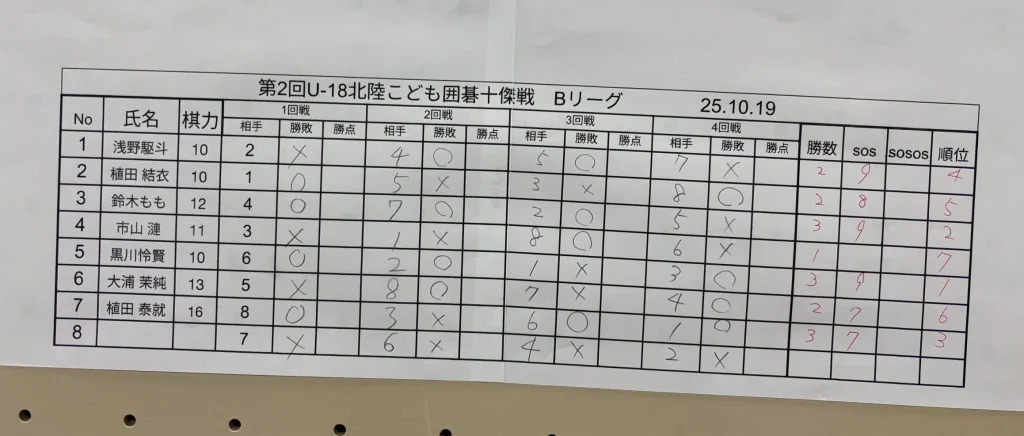 第2回U-18北陸こども囲碁十傑戦 Bリーグ 25.10.19
No 氏名 棋力 1回戦 2回戦 3回戦 4回戦 勝数 sos sosos 順位
相手 勝敗 勝点 相手 勝敗 勝点 相手 勝敗 勝点 相手 勝敗 勝点
1 浅野駆斗 10 2 × 4 ○ 5 ○ 7 × 2 9 4
2 植田 結衣 10 1 ○ 5 × 3 × 8 ○ 2 8 5
3 鈴木もも 12 4 ○ 7 ○ 2 ○ 5 × 3 9 2
4 市山 漣 11 3 × 1 × 8 ○ 6 × 1 7
5 黒川怜賢 10 6 ○ 2 ○ 1 × 3 ○ 3 9 1
6 大浦 茉純 13 5 × 8 ○ 7 × 4 ○ 2 7 6
7 植田 泰就 16 8 ○ 3 × 6 ○ 1 ○ 3 7 3
8 7 × 6 × 4 × 2 ×